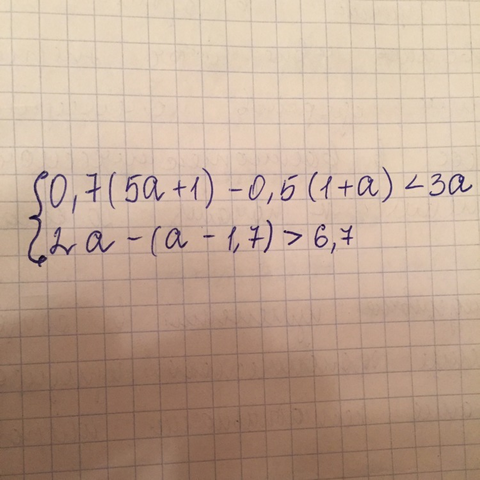 0,7(5a+1)-0,5(1+a)<3a
2a-(a-1,7)>6,7